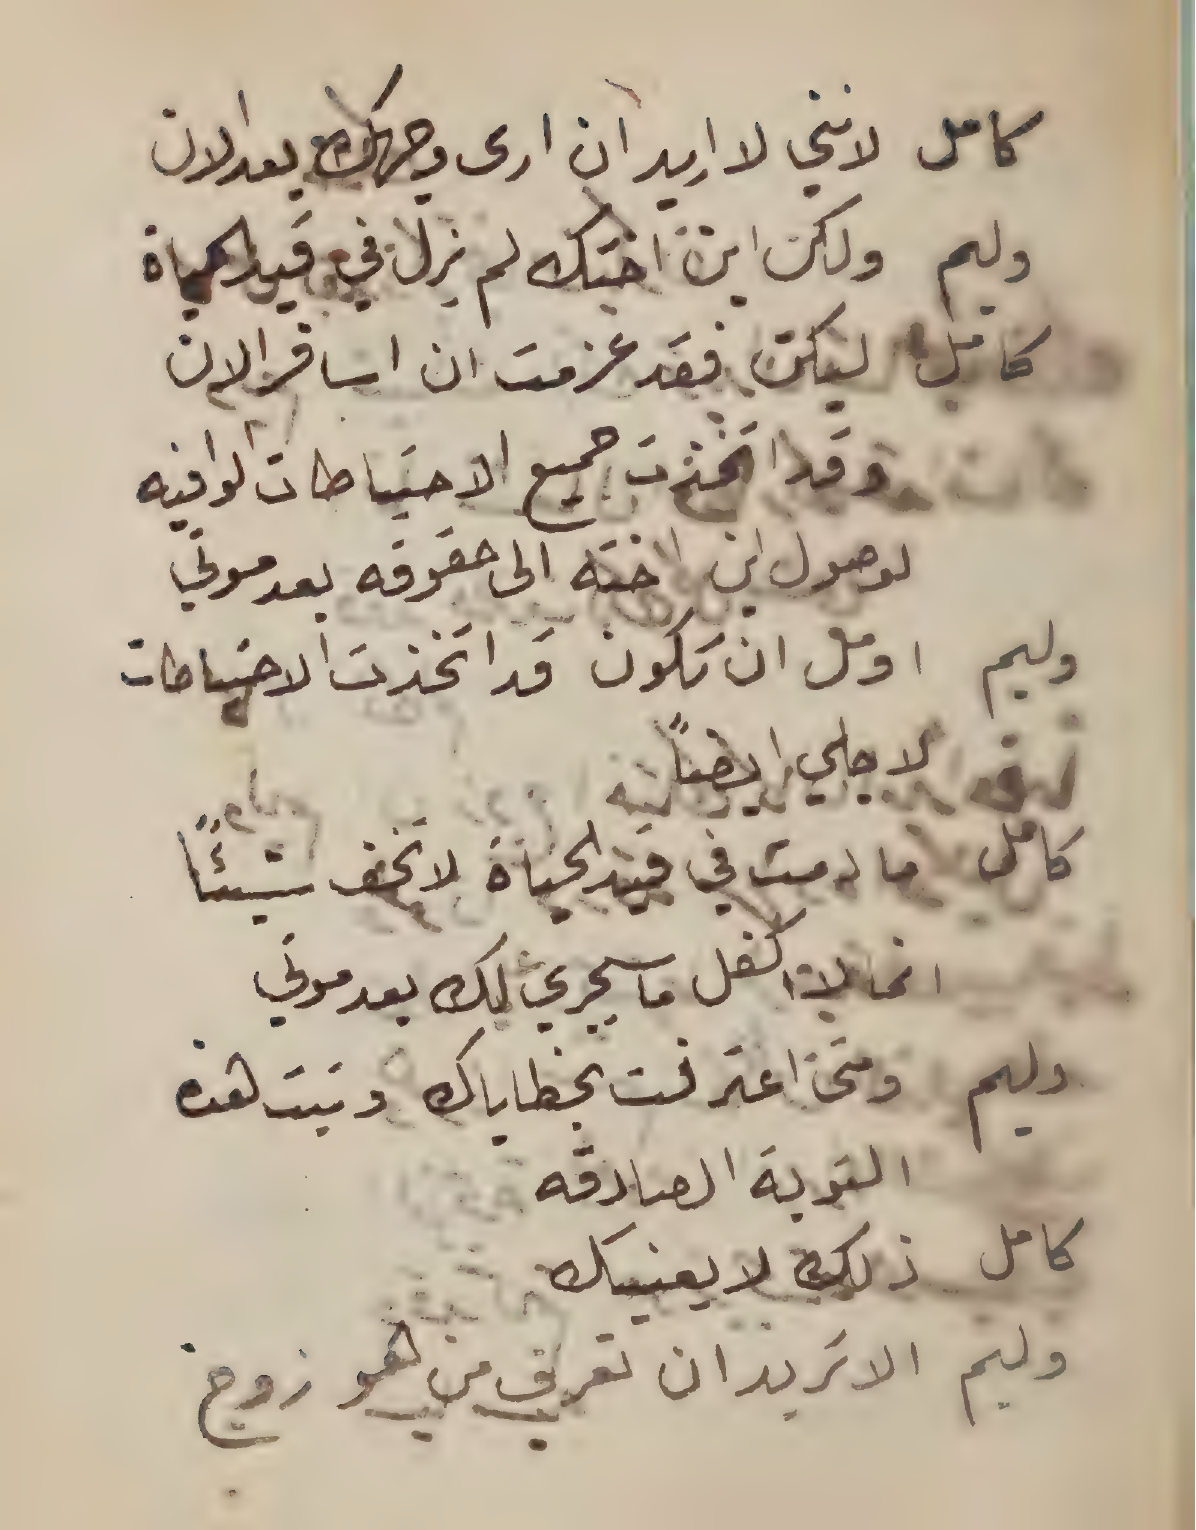 كامل لانني لا اريد ان ارى وجهك بعد الان
وليم ولكن ابن اختك لم يزل في قيد الحياة
كامل ليكن فقد عزمت ان اسافر الان
وقد اتخذت جميع الاحتياطات الوافيه
لوصول ابن اخته الى حقوقه بعد موتي
وليم اومل ان تكون قد اتخذت الاحتياطات
لاجلي ايضاً
كامل ما دمت في قيد الحياة لا تخف شيئاً
انما لا اكفل ما سيجري لك بعد موتي
وليم ومتى اعترفت بخطاياك وتبت هذه
التوبة الصادقه
كامل ذلك لا يعنيك
وليم الا تريد ان تعرف من هو زوج